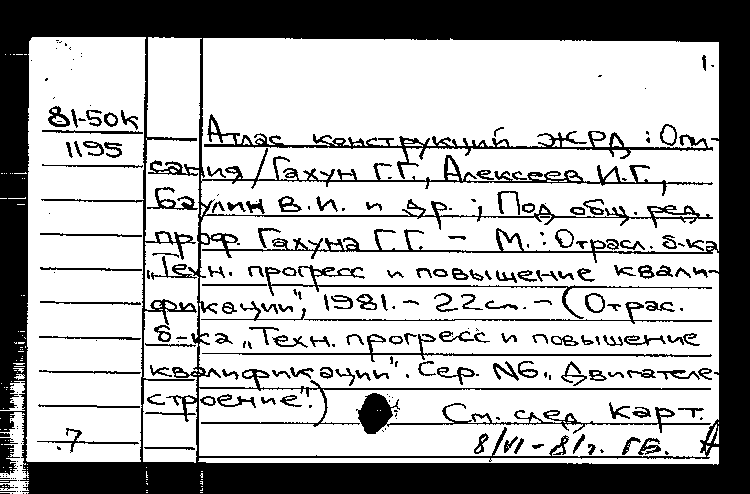 1.
81-50К
1195
Атлас конструкций ЖРД : Опи-
сания / Гахун Г.Г., Алексеев И.Г.,
Баулин В.И. и др. ; Под общ. ред.
проф. Гахуна Г.Г. – М. : Отрасл. б-ка
„Техн. прогресс и повышение квали-
фикации", 1981. – 22 сл. – (Отрас.
б-ка „Техн. прогресс и повышение
квалификации". Сер. N6 „Двигателе-
строение".)
См. след. карт.
.7
8/VI – 81г. ГБ.